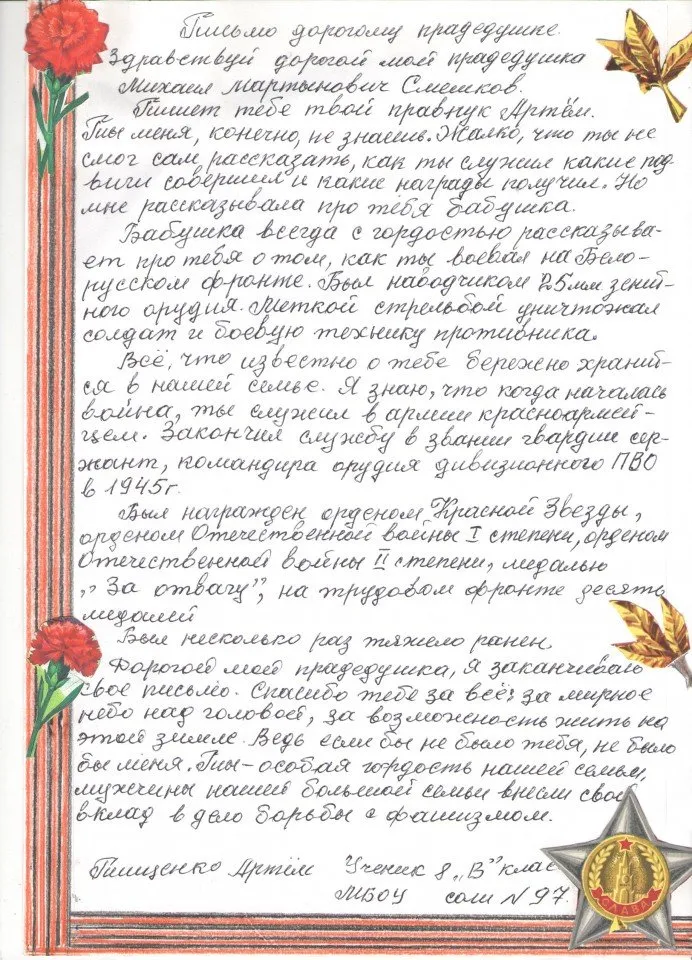 Письмо дорогому прадедушке.
Здравствуй дорогой мой прадедушка
Михаил Мартынович Смешков.
Пишет тебе твой правнук Артём.
Ты меня, конечно, не знаешь. Жалко, что ты не
смог сам рассказать, как ты служил какие под
виги совершил и какие награды получил. Но
мне рассказывала про тебя бабушка.
Бабушка всегда с гордостью рассказыва-
ет про тебя о том, как ты воевал на Бело-
русском фронте. Был наводчиком 25мм зенит-
ного орудия. Меткой стрельбой уничтожал
солдат и боевую технику противника.
Всё, что известно о тебе бережно хранит-
ся в нашей семье. Я знаю, что когда началась
война, ты служил в армии красноармей-
цем. Закончил службу в звании гвардии сер-
жант, командира орудия дивизионного ПВО
в 1945г.
Был награждён орденом Красной Звезды,
орденом Отечественной войны I степени, орденом
Отечественной войны II степени, медалью
„За отвагу", на трудовом фронте десять
медалей
Был несколько раз тяжело ранен.
Дорогой мой прадедушка, я заканчиваю
свое письмо. Спасибо тебе за всё: за мирное
небо над головой, за возможность жить на
этой земле. Ведь если бы не было тебя, не было
бы меня. Ты - особая гордость нашей семьи,
мужчины нашей большой семьи внесли свой
вклад в дело борьбы с фашизмом.
Тищенко Артём Ученик 8 „В" клас
МБОУ сош N 97.
СЛАВА